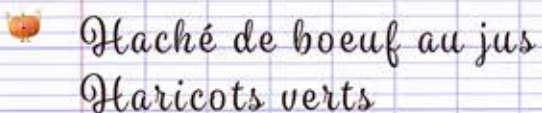 Haché de boeuf au jus
Haricots verts